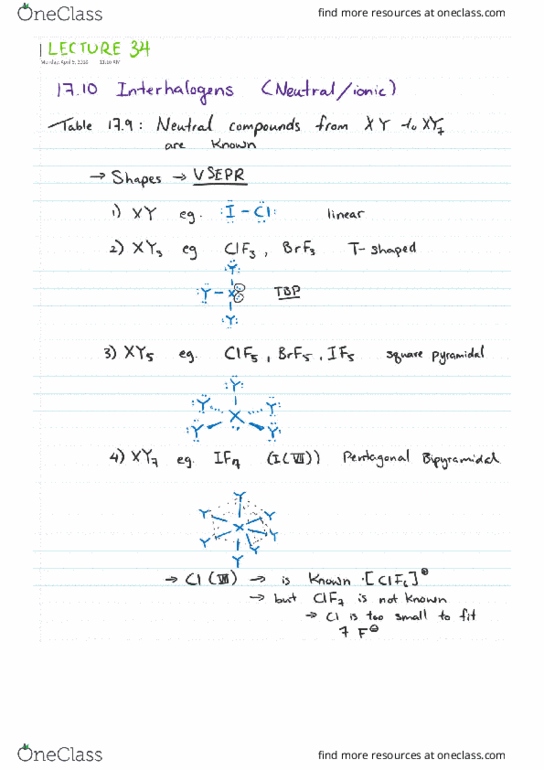 OneClass find more resources at oneclass.com
LECTURE 34
Monday, April 9, 2018
17.10 Interhalogens (Neutral/ionic)
Table 17.9: Neutral compounds from XY to XY₇
are Known
→ Shapes → VSEPR
1) XY eg. I - Cl linear
2) XY₃ eg ClF₃, BrF₃ T-shaped
Y
Y - X TBP
Y
3) XY₅ eg. ClF₅, BrF₅, IF₅ square pyramidal
Y
Y Y
X
Y Y
4) XY₇ eg. IF₇ (I(VII)) Pentagonal Bipyramidal
Y
Y Y
X
Y Y Y
Y
→ Cl (VII) → is Known [ClF₆]⊕
→ but ClF₇ is not known
→ Cl is too small to fit
7 F⊖
OneClass find more resources at oneclass.com